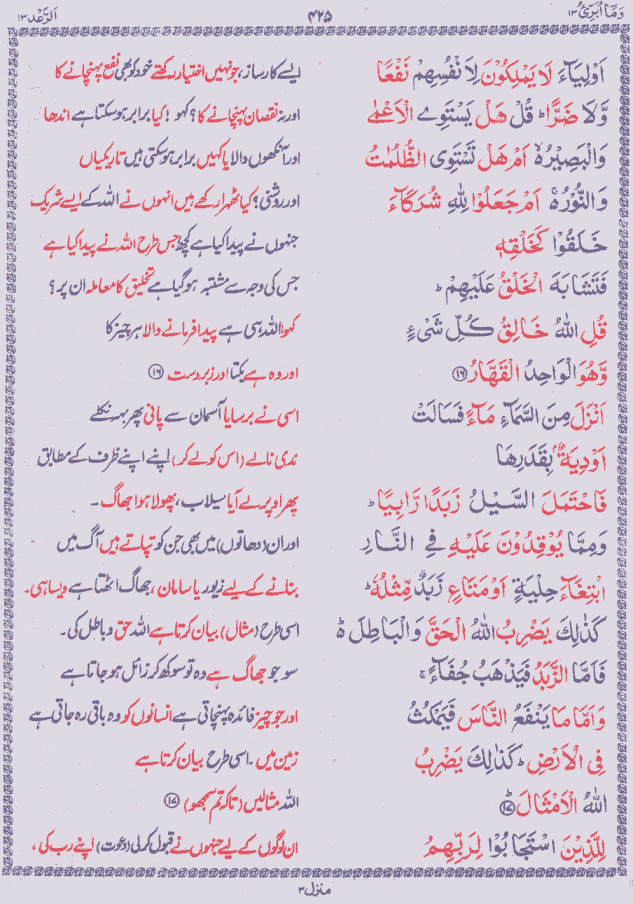 وَمَآ اُبَرِّئُ ١٣
۴۲۵
اَلرَّعْد ١٣
اَوْلِيَآءَ لَا يَمْلِكُوْنَ لِاَنْفُسِهِمْ نَفْعًا ایسے کارساز، جو نہیں اختیار رکھتے خود کو بھی نفع پہنچانے کا
وَّلَا ضَرًّا ؕ قُلْ هَلْ يَسْتَوِى الْاَعْمٰى اور نہ نقصان پہنچانے کا؟ کہو! کیا برابر ہو سکتا ہے اندھا
وَالْبَصِيْرُ ۙ اَمْ هَلْ تَسْتَوِى الظُّلُمٰتُ اور آنکھوں والا یا کہیں برابر ہو سکتی ہیں تاریکیاں
وَالنُّوْرُ ۚ اَمْ جَعَلُوْا لِلّٰهِ شُرَكَآءَ اور روشنی؟ کیا ٹھہرا رکھے ہیں انہوں نے اللہ کے ایسے شریک
خَلَقُوْا كَخَلْقِهٖ جنہوں نے پیدا کیا ہے کچھ جس طرح اللہ نے پیدا کیا ہے
فَتَشَابَهَ الْخَلْقُ عَلَيْهِمْ ؕ جس کی وجہ سے مشتبہ ہو گیا ہے تخلیق کا معاملہ ان پر؟
قُلِ اللّٰهُ خَالِقُ كُلِّ شَىْءٍ کہو! اللہ ہی ہے پیدا فرمانے والا ہر چیز کا
وَّهُوَ الْوَاحِدُ الْقَهَّارُ ۱۶ اور وہ ہے یکتا اور زبردست ۱۶
اَنْزَلَ مِنَ السَّمَآءِ مَآءً فَسَالَتْ اسی نے برسایا آسمان سے پانی پھر بہہ نکلے
اَوْدِيَةٌۢ بِقَدَرِهَا ندی نالے (اس کو لے کر) اپنے اپنے ظرف کے مطابق
فَاحْتَمَلَ السَّيْلُ زَبَدًا رَّابِيًا ؕ پھر اوپر لے آیا سیلاب، پھولا ہوا جھاگ۔
وَمِمَّا يُوْقِدُوْنَ عَلَيْهِ فِى النَّارِ اور ان (دھاتوں) میں بھی جن کو تپاتے ہیں آگ میں
ابْتِغَآءَ حِلْيَةٍ اَوْ مَتَاعٍ زَبَدٌ مِّثْلُهٗ ؕ بنانے کے لیے زیور یا سامان، جھاگ اٹھتا ہے ویسا ہی۔
كَذٰلِكَ يَضْرِبُ اللّٰهُ الْحَقَّ وَالْبَاطِلَ ؕ اسی طرح (مثال) بیان کرتا ہے اللہ حق و باطل کی۔
فَاَمَّا الزَّبَدُ فَيَذْهَبُ جُفَآءً ۚ سو جو جھاگ ہے وہ تو سوکھ کر زائل ہو جاتا ہے
وَاَمَّا مَا يَنْفَعُ النَّاسَ فَيَمْكُثُ اور جو چیز فائدہ پہنچاتی ہے انسانوں کو وہ باقی رہ جاتی ہے
فِى الْاَرْضِ ؕ كَذٰلِكَ يَضْرِبُ زمین میں۔ اسی طرح بیان کرتا ہے
اللّٰهُ الْاَمْثَالَ ؕ ۱۷ اللہ مثالیں (تاکہ تم سمجھو) ۱۷
لِلَّذِيْنَ اسْتَجَابُوْا لِرَبِّهِمُ ان لوگوں کے لیے جنہوں نے قبول کر لی (دعوت) اپنے رب کی،
منزل ۳